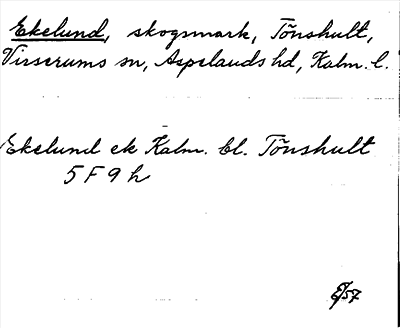 Ekelund, skogsmark, Tönshult,
Virserums sn, Aspelands hd, Kalm. l.
Ekelund ek Kalm. bl. Tönshult
5 F 9 h
E/57